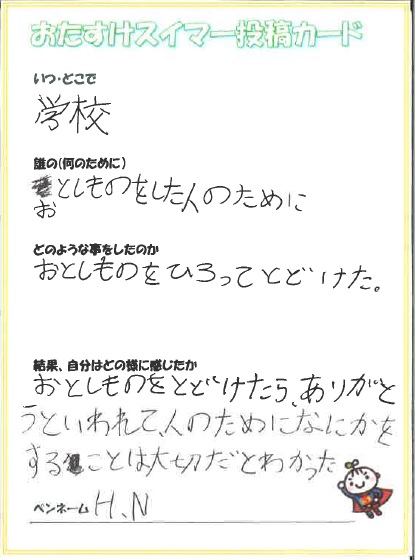 おたすけスイマー投稿カード
いつ・どこで
学校
誰の(何のために)
おとしものをした人のために
どのような事をしたのか
おとしものをひろってとどけた。
結果、自分はどの様に感じたか
おとしものをとどけたら、ありがと
うといわれて、人のためになにかを
することは大切だとわかった
ペンネーム H、N